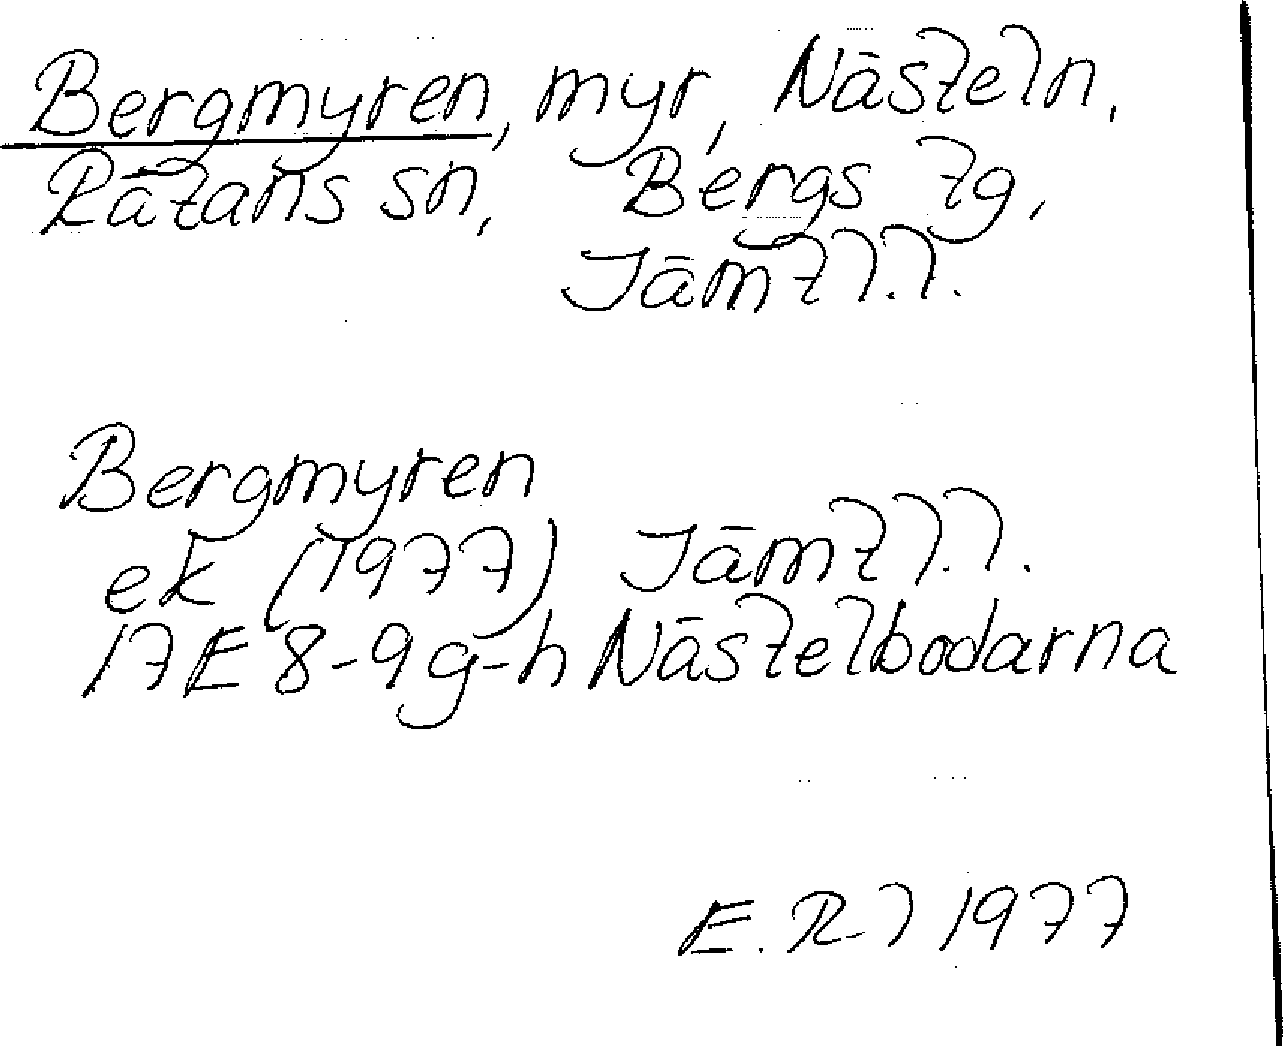 Bergmyren, myr, Nästeln,
Rätans sn, Bergs tg,
Jämtl.l.
Bergmyren
ek (1977) Jämtl.l.
17E 8-9 g-h Nästelbodarna
E. R-l 1977